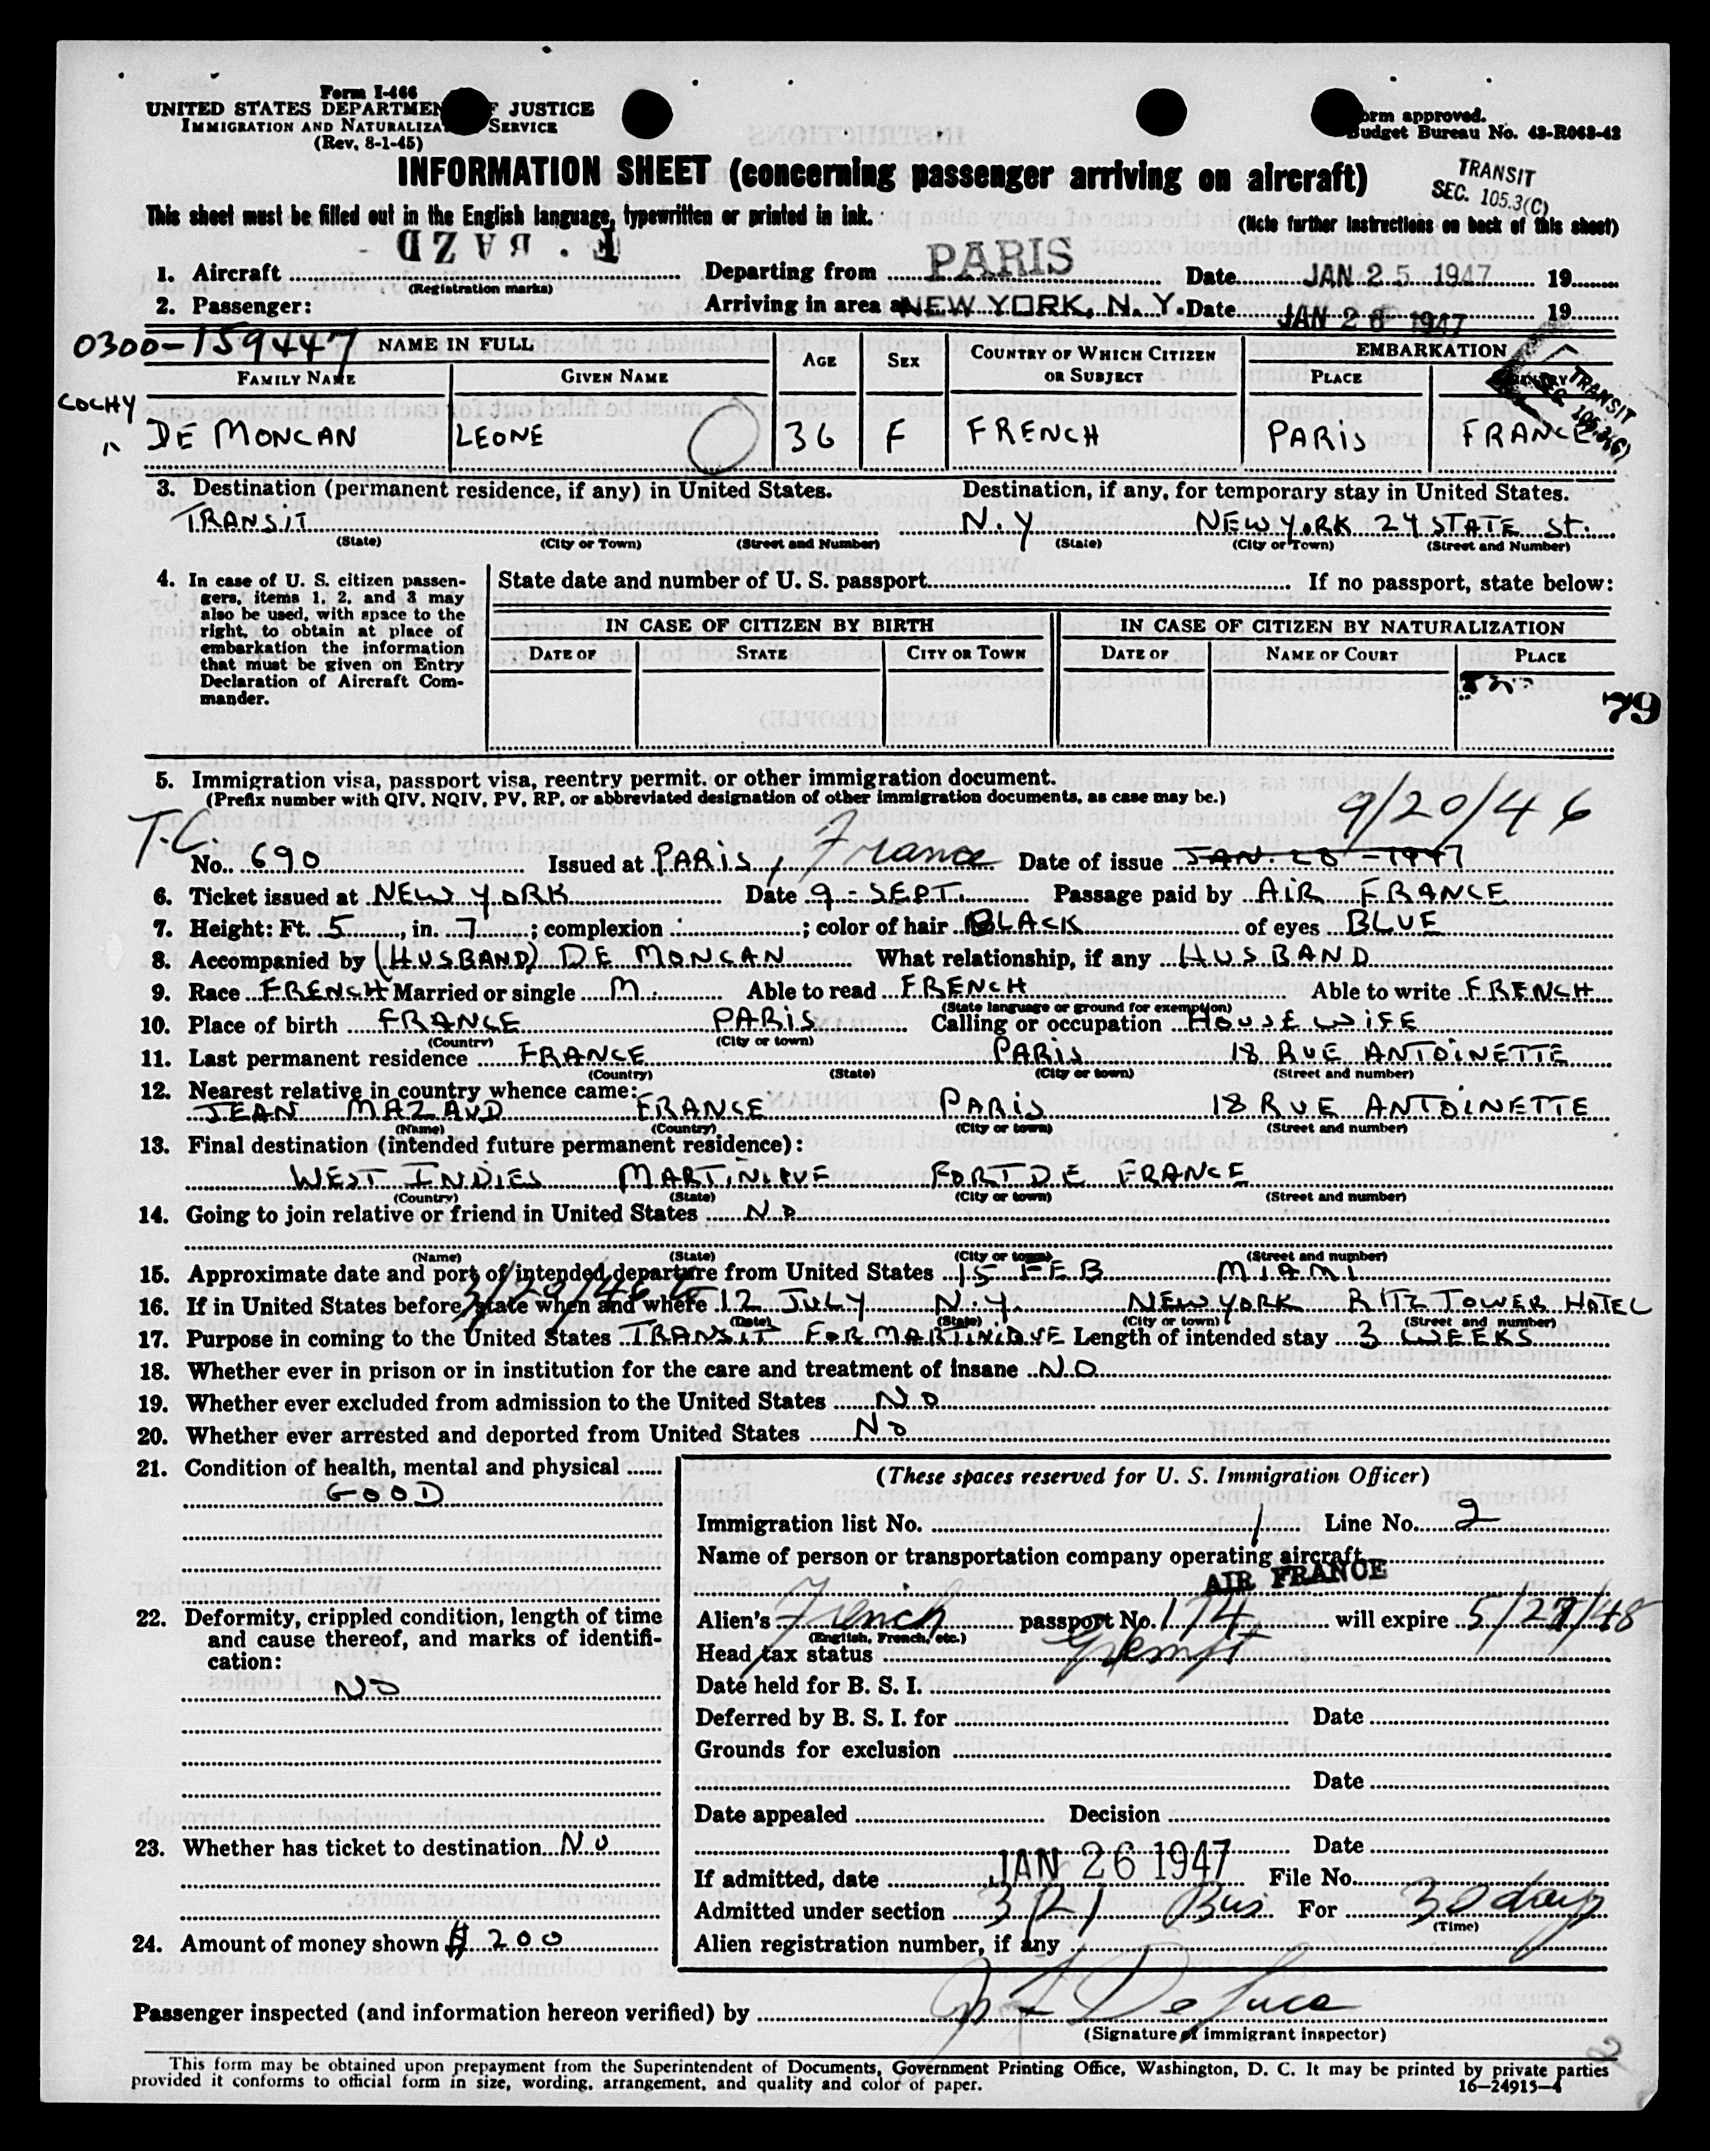 Form I-466
UNITED STATES DEPARTMENT OF JUSTICE
IMMIGRATION AND NATURALIZATION SERVICE
(Rev. 8-1-45)
Form approved.
Budget Bureau No. 43-R063-42
INFORMATION SHEET (concerning passenger arriving on aircraft)
TRANSIT
SEC. 105.3(C)
This sheet must be filled out in the English language, typewritten or printed in ink.
(Note further instructions on back of this sheet)
F. BAZD
1. Aircraft
(Registration marks)
Departing from PARIS Date JAN 25 1947 19
2. Passenger:
Arriving in area at NEW YORK, N. Y. Date JAN 26 1947 19
0300-159447
NAME IN FULL
FAMILY NAME
GIVEN NAME
AGE
SEX
COUNTRY OF WHICH CITIZEN
OR SUBJECT
EMBARKATION
PLACE
COUNTRY
TRANSIT
SEC. 105.3(C)
COCHY
DE MONCAN LEONE 36 F FRENCH PARIS FRANCE
3. Destination (permanent residence, if any) in United States. Destination, if any, for temporary stay in United States.
TRANSIT N.Y NEW YORK 24 STATE St.
(State) (City or Town) (Street and Number) (State) (City or Town) (Street and Number)
4. In case of U. S. citizen passen-
gers, items 1, 2, and 3 may
also be used, with space to the
right, to obtain at place of
embarkation the information
that must be given on Entry
Declaration of Aircraft Com-
mander.
State date and number of U. S. passport If no passport, state below:
IN CASE OF CITIZEN BY BIRTH
IN CASE OF CITIZEN BY NATURALIZATION
DATE OF STATE CITY OR TOWN DATE OF NAME OF COURT PLACE
79
5. Immigration visa, passport visa, reentry permit, or other immigration document.
(Prefix number with QIV, NQIV, PV, RP, or abbreviated designation of other immigration documents, as case may be.)
9/20/46
T.C.
No. 690 Issued at PARIS, France Date of issue JAN. 20 - 1947
6. Ticket issued at NEW YORK Date 9 - SEPT. Passage paid by AIR FRANCE
7. Height: Ft. 5, in. 7; complexion ; color of hair BLACK of eyes BLUE
8. Accompanied by (HUSBAND) DE MONCAN What relationship, if any HUSBAND
9. Race FRENCH Married or single M. Able to read FRENCH Able to write FRENCH
(State language or ground for exemption)
10. Place of birth FRANCE PARIS Calling or occupation HOUSEWIFE
(Country) (City or town)
11. Last permanent residence FRANCE PARIS 18 RUE ANTOINETTE
(Country) (State) (City or town) (Street and number)
12. Nearest relative in country whence came:
JEAN MAZAUD FRANCE PARIS 18 RUE ANTOINETTE
(Name) (Country) (City or town) (Street and number)
13. Final destination (intended future permanent residence):
WEST INDIES MARTINIQUE FORT DE FRANCE
(Country) (State) (City or town) (Street and number)
14. Going to join relative or friend in United States NO
(Name) (State) (City or town) (Street and number)
15. Approximate date and port of intended departure from United States 15 FEB MIAMI
3/29/46 to
16. If in United States before, state when and where 12 JULY N.Y. NEW YORK RITZ TOWER HOTEL
(Date) (State) (City or town) (Street and number)
17. Purpose in coming to the United States TRANSIT FOR MARTINIQUE Length of intended stay 3 WEEKS
18. Whether ever in prison or in institution for the care and treatment of insane NO
19. Whether ever excluded from admission to the United States NO
20. Whether ever arrested and deported from United States NO
21. Condition of health, mental and physical
GOOD
22. Deformity, crippled condition, length of time
and cause thereof, and marks of identifi-
cation:
NO
23. Whether has ticket to destination NO
24. Amount of money shown $ 200
(These spaces reserved for U. S. Immigration Officer)
Immigration list No. 1 Line No. 2
Name of person or transportation company operating aircraft
AIR FRANCE
Alien's French passport No. 174 will expire 5/27/48
(English, French, etc.)
Head tax status Exempt
Date held for B. S. I.
Deferred by B. S. I. for Date
Grounds for exclusion
Date
Date appealed Decision
Date
If admitted, date JAN 26 1947 File No.
Admitted under section 3(2) Bus For 30 days
(Time)
Alien registration number, if any
Passenger inspected (and information hereon verified) by De Luca
(Signature of immigrant inspector)
This form may be obtained upon prepayment from the Superintendent of Documents, Government Printing Office, Washington, D. C. It may be printed by private parties
provided it conforms to official form in size, wording, arrangement, and quality and color of paper.
16—24915-4